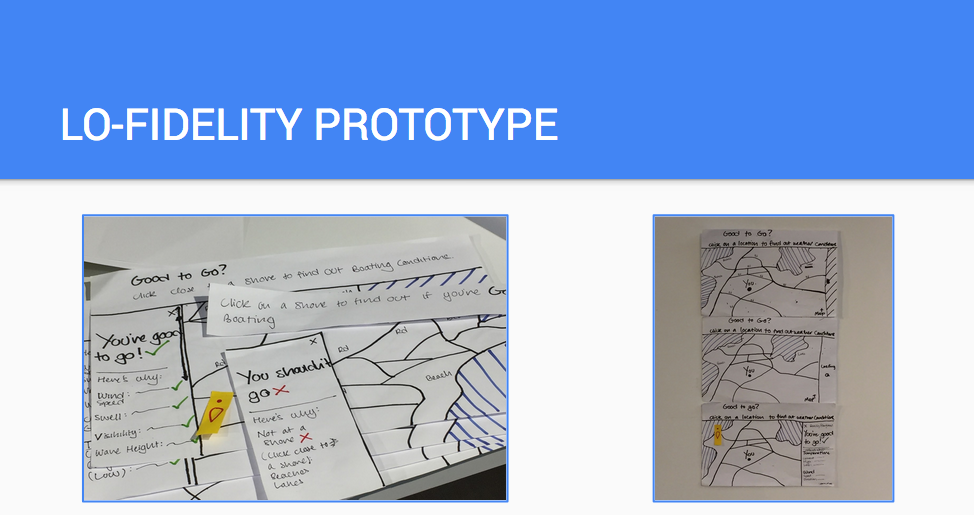 LO-FIDELITY PROTOTYPE
Good to Go?
Click close
a shore to find out Boating Conditions
Click on a shore to find out if you're Go
Boating
x
You're good
to go!
Here's why:
Wind
Speed
Swell:
Visibility:
Wave Height:
(Low)
Rd
Rd
Rd
Beach
x
You shouldn't
go
Here's why:
Not at a
shore
(Click close to
a shore):
Beaches
Lakes
Good to Go?
Click on a location to find out weather Conditions
You
Map
Good to Go?
Click on a location to find out weather Conditions
You
Loading
Map
Good to go?
Click on a location to find out weather Conditions
You
You're good
to go!
Temperature
Wind